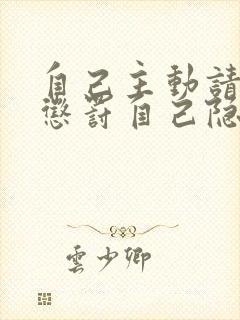 自己主動請
懲罰自己隐
雲少卿